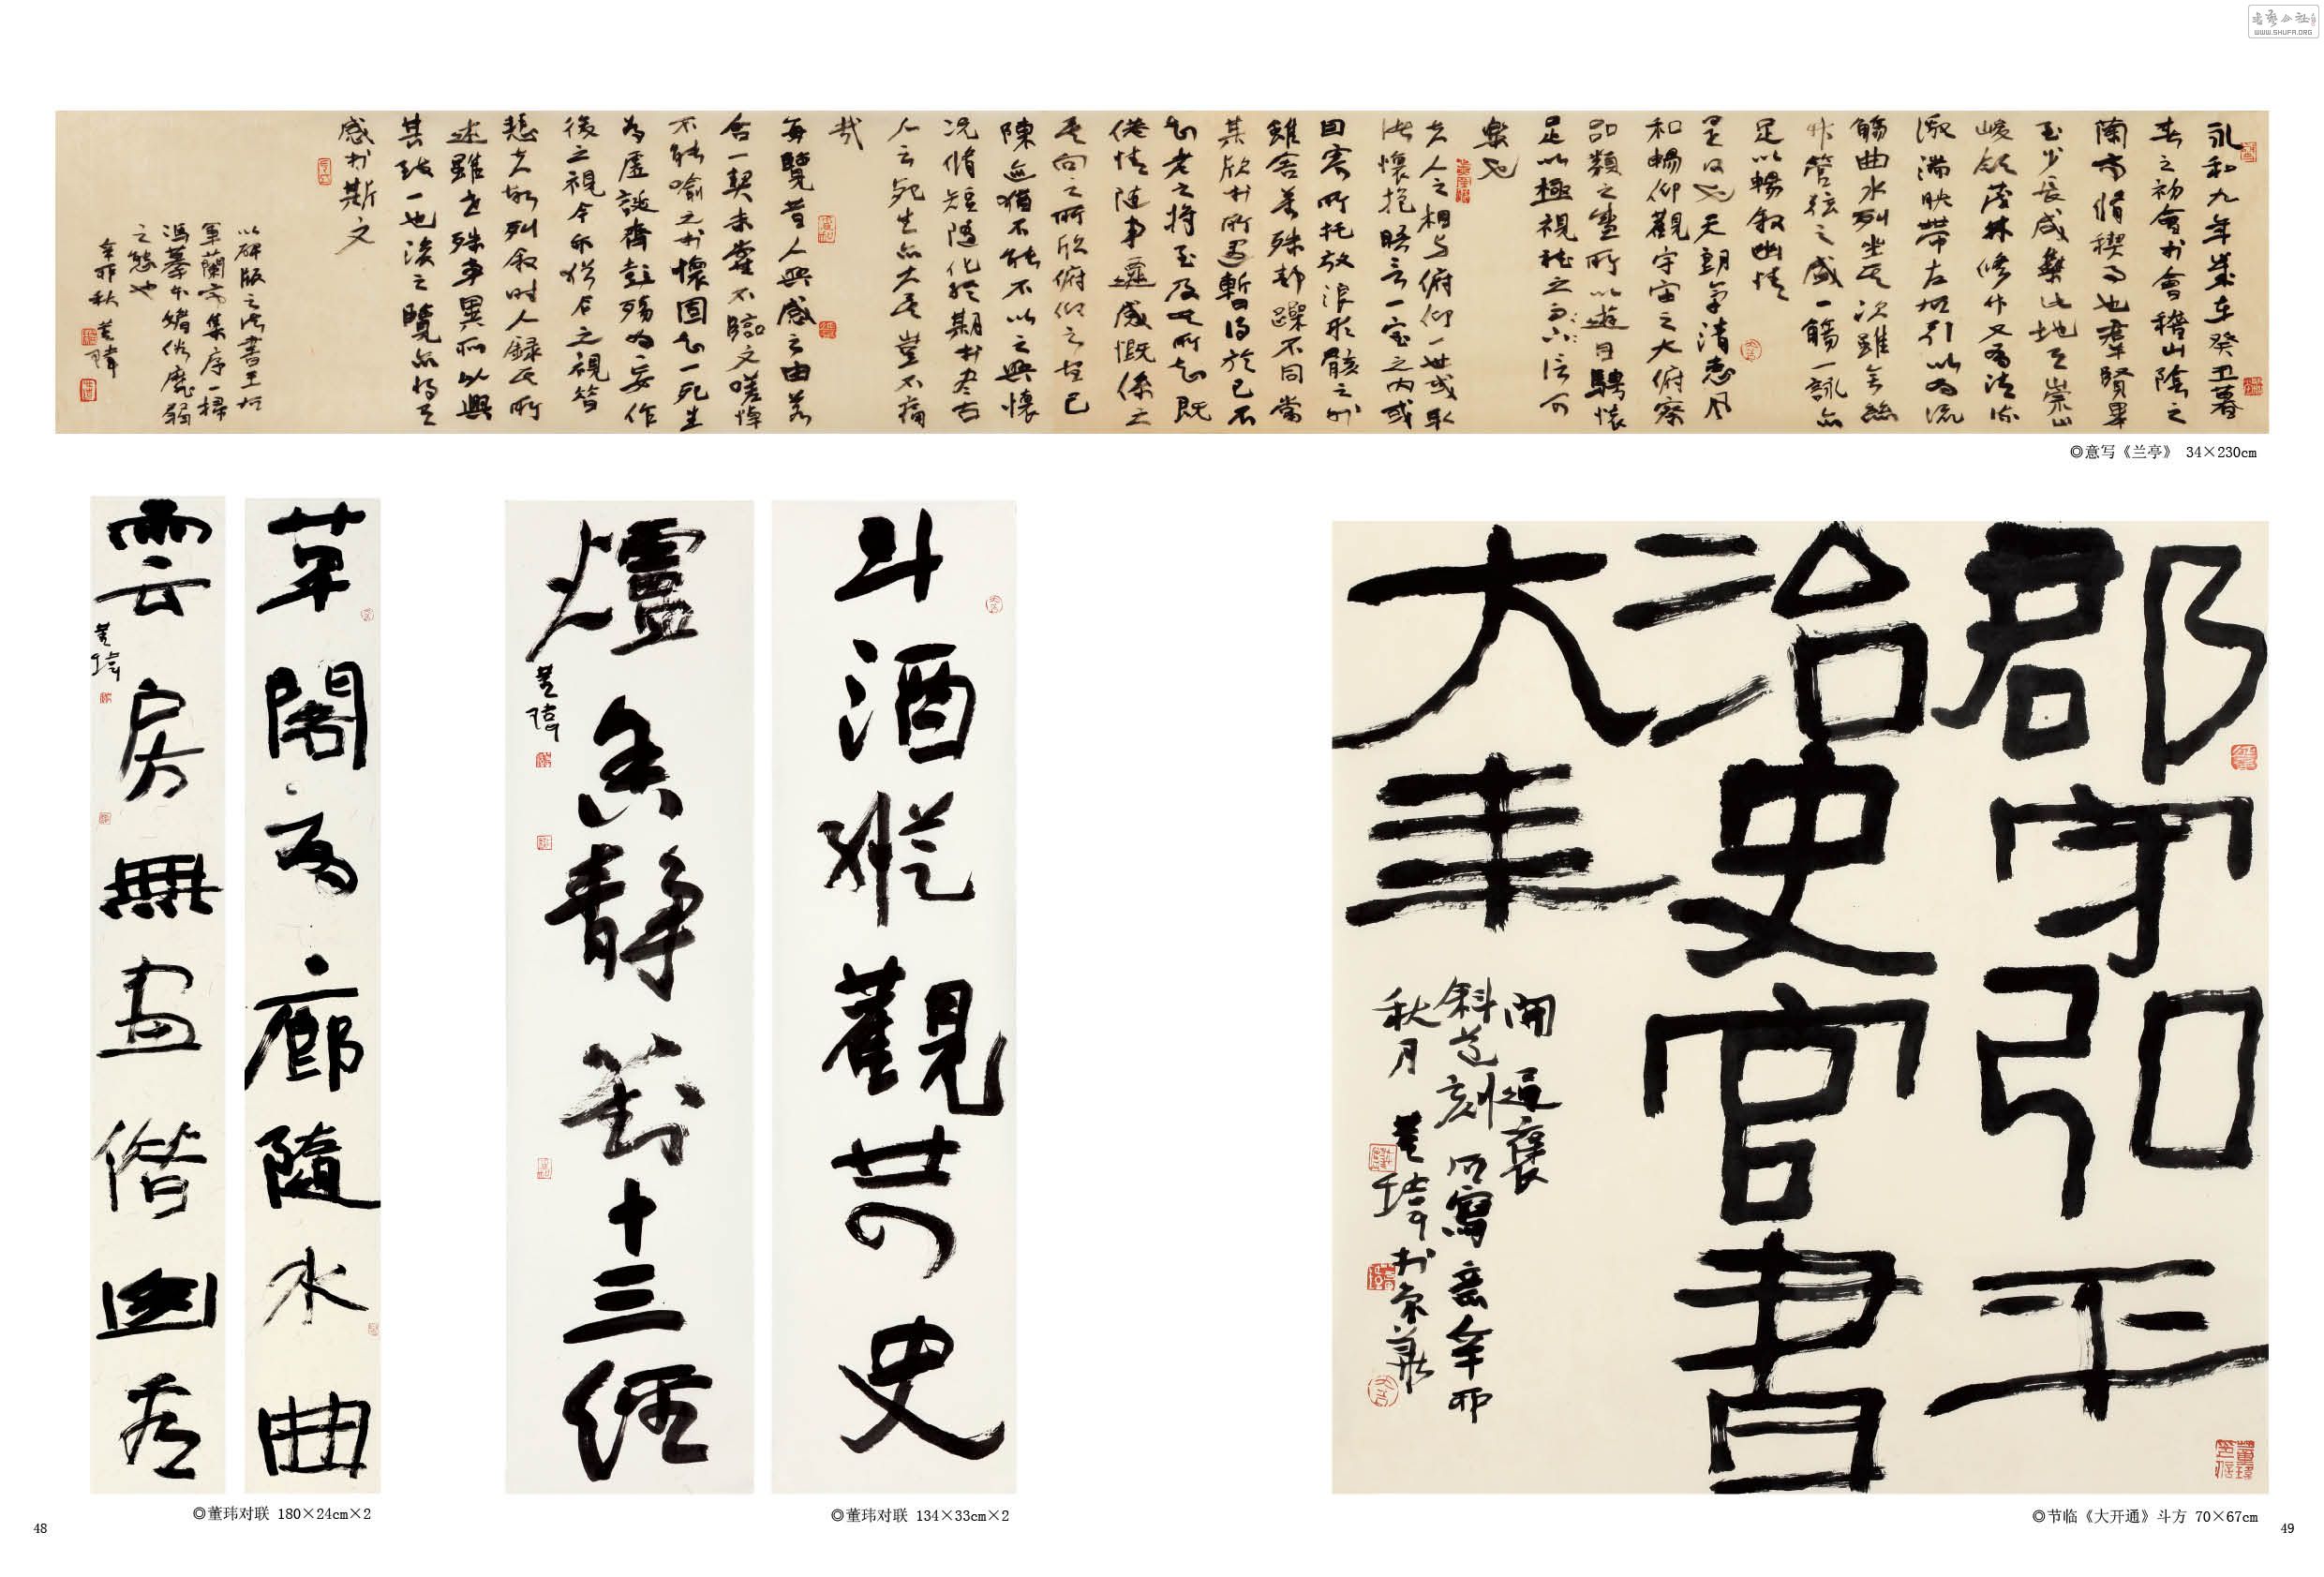 書法公社
WWW.SHUFA.ORG
永和九年歲在癸丑暮
春之初會於會稽山陰之
蘭亭脩稧事也群賢畢
至少長咸集此地有崇山
峻領茂林脩竹又有清流
激湍映帶左右引以為流
觴曲水列坐其次雖無絲
竹管弦之盛一觴一詠亦
足以暢敘幽情
是日也天朗氣清惠風
和暢仰觀宇宙之大俯察
品類之盛所以遊目騁懷
足以極視聽之娛信可
樂也
夫人之相與俯仰一世或取
諸懷抱晤言一室之內或
因寄所托放浪形骸之外
雖舍萬殊靜躁不同當
其欣於所遇暫得於己不
知老之將至及其所之既
倦情隨事遷感慨係之
矣向之所欣俯仰之間已
陳迹猶不能不以之興懷
況脩短隨化終期於盡古
人云死生亦大矣豈不痛
哉
每覽昔人興感之由若
合一契未嘗不臨文嗟悼
不能喻之於懷固知一死生
為虛誕齊彭殤為妄作
後之視今亦猶今之視昔
悲夫故列敘時人録其所
述雖世殊事異所以興
其致一也後之覽亦將有
感於斯文
以碑版之法書王右
軍蘭亭集序一掃
馮摹本緒俗靡弱
之態也
辛卯秋 董瑋
◎意写《兰亭》 34×230cm
草閣為廊隨水曲
雲房無畫借幽看
董瑋
◎董玮对联 180×24cm×2
斗酒縱觀廿四史
爐香靜對十三經
董瑋
◎董玮对联 134×33cm×2
郡守弘平
治史官書
大年
開通褒
斜道刻石寫意辛卯
秋月 董瑋於京華
◎节临《大开通》斗方 70×67cm
48
49